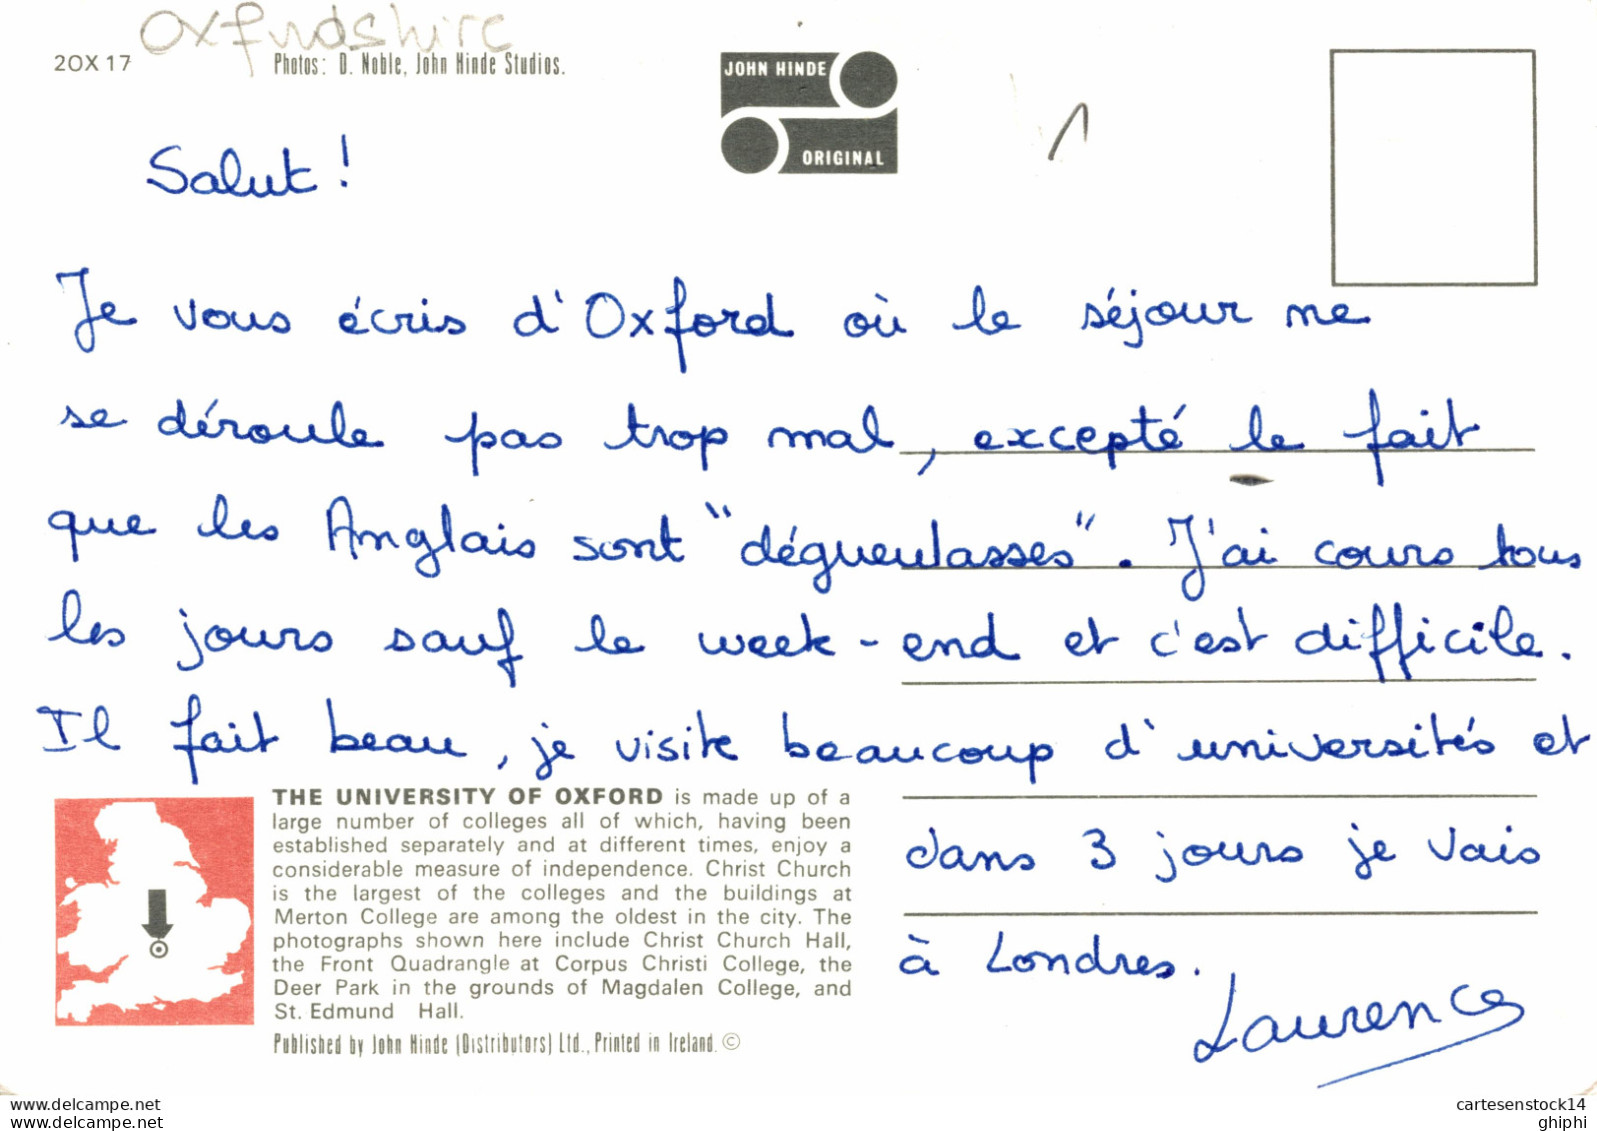 Oxfordshire
20X17
Photos: D. Noble, John Hinde Studios.
JOHN HINDE
ORIGINAL
Salut !
Je vous écris d'Oxford où le séjour me
se déroule pas trop mal, excepté le fait
que les Anglais sont "dégueulasses". J'ai cours tous
les jours sauf le week-end et c'est difficile.
Il fait beau, je visite beaucoup d'universités et
dans 3 jours je vais
à Londres.
Laurence
THE UNIVERSITY OF OXFORD is made up of a
large number of colleges all of which, having been
established separately and at different times, enjoy a
considerable measure of independence. Christ Church
is the largest of the colleges and the buildings at
Merton College are among the oldest in the city. The
photographs shown here include Christ Church Hall,
the Front Quadrangle at Corpus Christi College, the
Deer Park in the grounds of Magdalen College, and
St. Edmund Hall.
Published by John Hinde (Distributors) Ltd., Printed in Ireland. ©
www.delcampe.net
www.delcampe.net
cartesenstock14
ghiphi